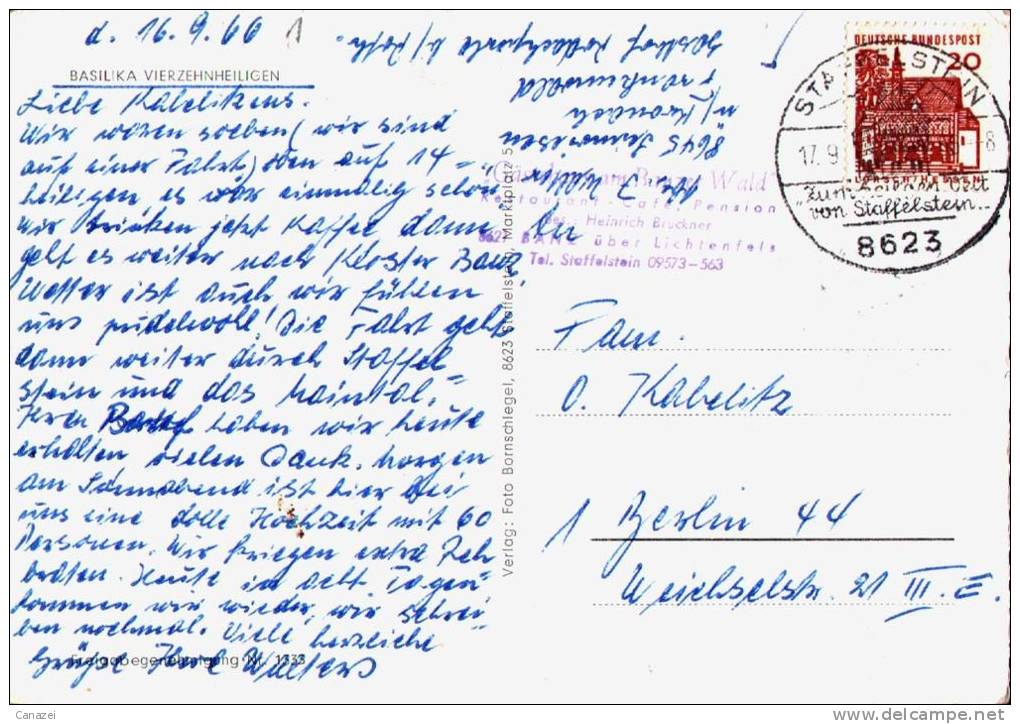 d. 16.9.66 1
BASILIKA VIERZEHNHEILIGEN
Liebe Kabelitzens.
Wir waren soeben (wir sind
auf einer Fahrt) oben auf 14=
heiligen es war einmalig schön
Wir trinken jetzt Kaffee dann
geht es weiter nach Kloster Banz
Wetter ist auch wir fühlen
uns pudelwohl! Die Fahrt geht
dann weiter durch Staffel=
stein und das Maintal.
Ihren Brief haben wir heute
erhalten vielen Dank. Morgen
am Sonnabend ist hier bei
uns eine dolle Hochzeit mit 60
Personen. Wir kriegen extra Reh
braten. Heute in acht Tagen
kommen wir wieder, wir schrei=
ben nochmal. Viele herzliche
Grüße Ihre Walters
Freigabegenehmigung Nr. 1333
Gasthof
Frankenwald
n/Kronach
8645
Verlag: Foto Bornschlegel, 8623 Staffelstein, Marktplatz 5
"Gästehaus am Banzer Wald"
Restaurant - Café, Pension
Bes.: Heinrich Brückner
8621 BANZ über Lichtenfels
Tel. Staffelstein 09573-563
DEUTSCHE BUNDESPOST
20
STAFFELSTEIN
17.9
-8
von Staffelstein...
8623
Fam.
O. Kabelitz
1 Berlin 44
Weichselstr. 21 III. E.
Canazei
delcampe.net